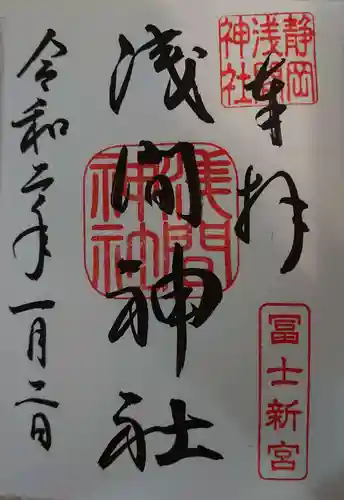 奉拝
静岡
浅間
神社
冨士新宮
浅間神社
浅間
神社
令和二年一月二日